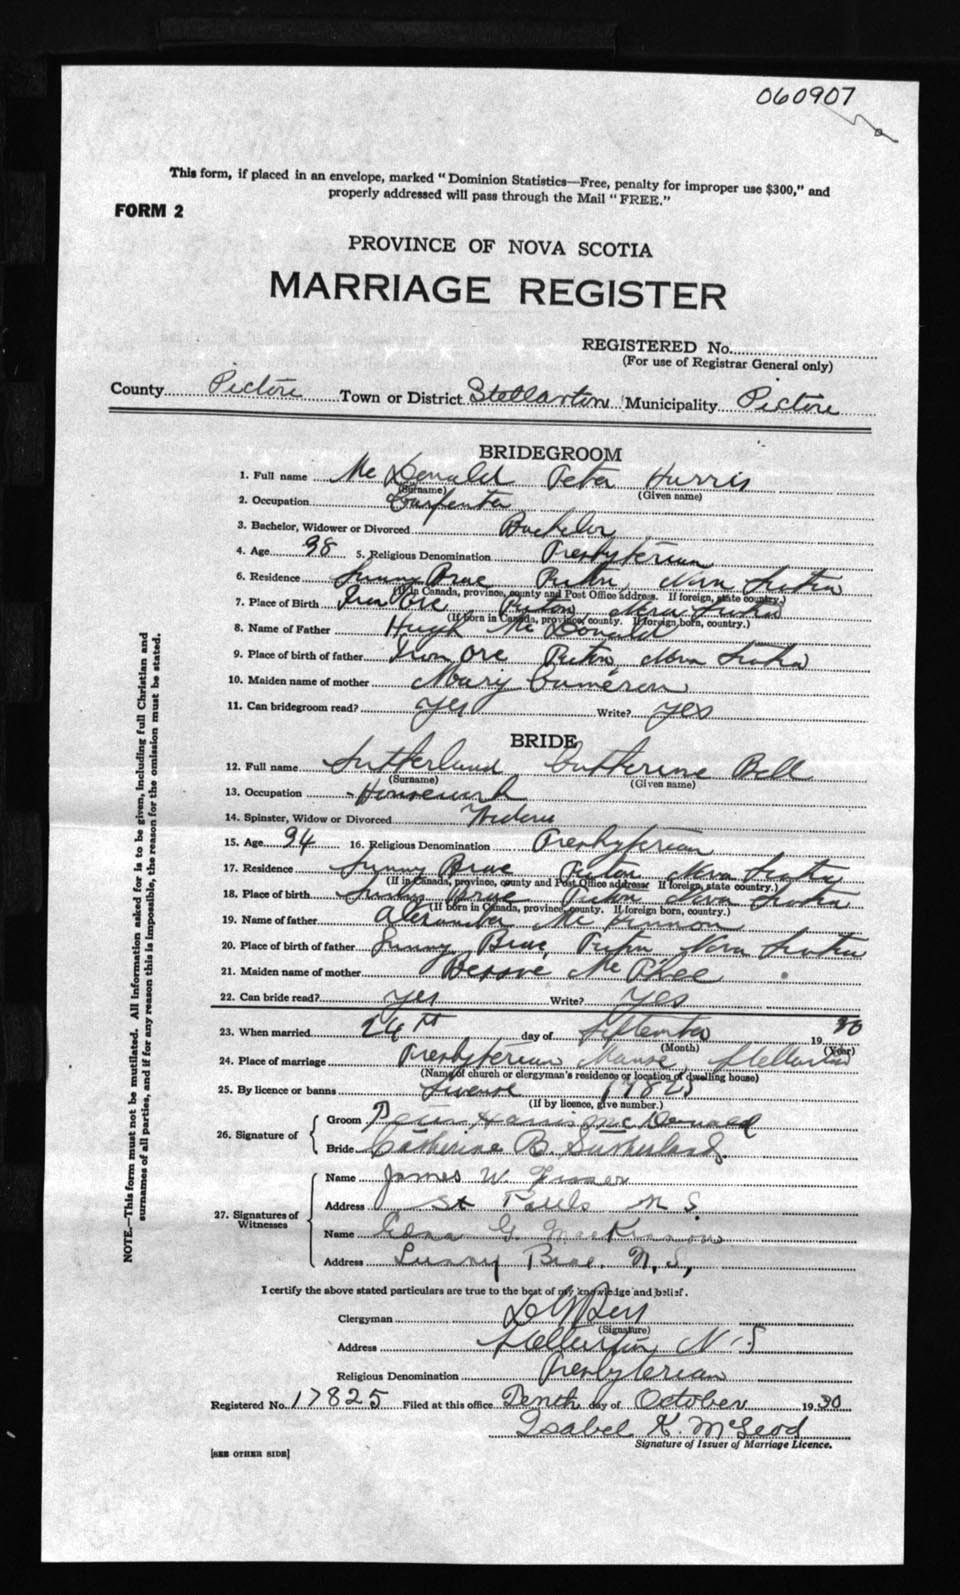 060907
This form, if placed in an envelope, marked "Dominion Statistics—Free, penalty for improper use $300," and
properly addressed will pass through the Mail "FREE."
FORM 2
PROVINCE OF NOVA SCOTIA
MARRIAGE REGISTER
REGISTERED No.
(For use of Registrar General only)
County Pictou Town or District Stellarton Municipality Pictou
BRIDEGROOM
1. Full name McDonald Peter Harris
(Surname) (Given name)
2. Occupation Carpenter
3. Bachelor, Widower or Divorced Bachelor
4. Age 38 5. Religious Denomination Presbyterian
6. Residence Sunny Brae Pictou, Nova Scotia
(If in Canada, province, county and Post Office address. If foreign, state country.)
7. Place of Birth Iron Ore Pictou, Nova Scotia
(If born in Canada, province, county. If foreign born, country.)
8. Name of Father Hugh McDonald
9. Place of birth of father Iron Ore Pictou, Nova Scotia
10. Maiden name of mother Mary Cameron
11. Can bridegroom read? yes Write? yes
BRIDE
12. Full name Sutherland Catherine Bell
(Surname) (Given name)
13. Occupation Housework
14. Spinster, Widow or Divorced Widow
15. Age 34 16. Religious Denomination Presbyterian
17. Residence Sunny Brae Pictou Nova Scotia
(If in Canada, province, county and Post Office address If foreign, state country.)
18. Place of birth Sunny Brae Pictou Nova Scotia
(If born in Canada, province, county. If foreign born, country.)
19. Name of father Alexander McKinnon
20. Place of birth of father Sunny Brae, Pictou Nova Scotia
21. Maiden name of mother McPhee
22. Can bride read? yes Write? yes
23. When married 24th day of September 1930
(Month) (Year)
24. Place of marriage Presbyterian Manse, Stellarton
(Name of church or clergyman's residence or location of dwelling house)
25. By licence or banns License 17825
(If by licence, give number.)
26. Signature of Groom Peter Harris McDonald
Bride Catherine B. Sutherland
27. Signatures of Witnesses Name James W. Fraser
Address St Pauls N.S.
Name Edna G. MacKinnon
Address Sunny Brae. N.S,
I certify the above stated particulars are true to the best of my knowledge and belief.
Clergyman
(Signature)
Address Stellarton, N.S
Religious Denomination Presbyterian
Registered No. 17825 Filed at this office Tenth day of October 1930
Isabel K. McLeod
Signature of Issuer of Marriage Licence.
[SEE OTHER SIDE]
NOTE.—This form must not be mutilated. All information asked for is to be given, including full Christian and
surnames of all parties, and if for any reason this is impossible, the reason for the omission must be stated.